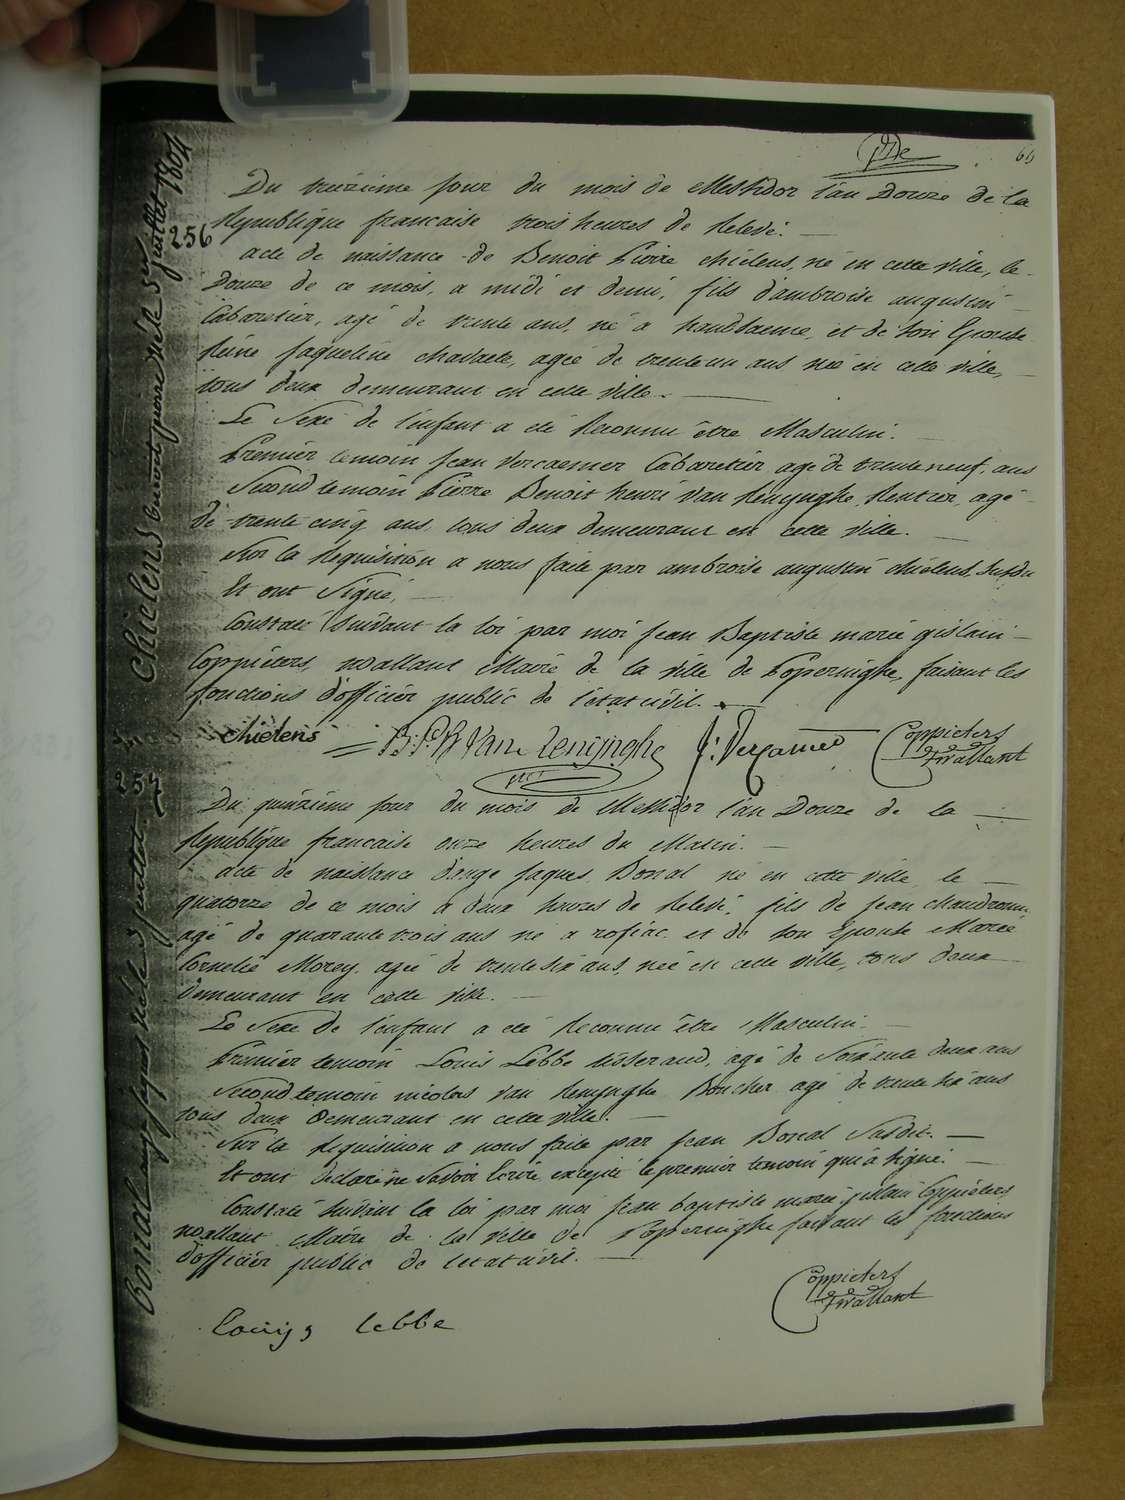 64
Du treizieme jour du mois de Messidor l'an Douze de la
Republique francaise trois heures de Relevé.
256
acte de naissance de Benoit Pierre chielens, né en cette ville, le
Douze de ce mois, a midi et demi, fils d'ambroise augustin
Cabaretier, agé de trente ans, né a , et de son Epouse
Reine Jaqueline , agée de trente un ans née en cette ville,
tous deux demeurant en cette ville.
Le Sexe de l'enfant a été Reconnu être Masculin.
Premier temoin Jean Vercaemer Cabaretier agé de trente neuf ans
Second temoin Pierre Benoit henri Van Renynghe, Rentier, agé
de trente cinq ans, tous deux demeurant en cette ville.
Sur la Requisition a nous faite par ambroise augustin chielens, Susdit
Et ont Signé,
Constaté Suivant la loi par moi Jean Baptiste marie gislain
Coppieters, wallant Maire de la ville de Poperinghe, faisant les
fonctions d'officier public de l'état civil.
chielens B: P: H Van Renijnghe J: Coppieters
twallant
Chielens benoit pierre né le 1er juillet 1804
257
Du quinzieme jour du mois de Messidor l'an Douze de la
Republique francaise onze heures du Matin.
acte de naissance d'ange Jaques Bonal né en cette ville le
quatorze de ce mois a deux heures de Relevé, fils de Jean chaudronn.
agé de quarante trois ans né a rofiac et de son Epouse Marie
Cornelie Morey, agée de trente six ans, née en cette ville, tous deux
demeurant en cette ville.
Le Sexe de l'enfant a été Reconnu être Masculin.
Premier temoin Louis Lebbe tisserand, agé de Soixante deux ans
Second temoin nicolas Van Renynghe Boucher agé de trente six ans
tous deux Demeurant en cette ville.
Sur la Requisition a nous faite par Jean Bonal Susdit.
Et ont declaré ne Savoir Ecrire excepté le premier temoin qui a signé.
Constaté Suivant la loi par moi Jean baptiste marie gislain Coppieters
wallant Maire de la ville de Poperinghe faisant les fonctions
d'officier public de l'état civil.
Coppieters
twallant
Louijs Lebbe
bonal ange jaques né le 3 juillet